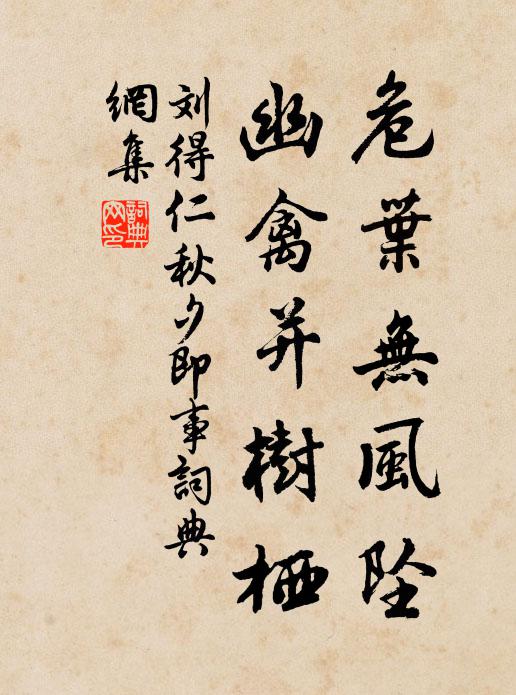 危葉無風墜
幽禽并樹栖
刘得仁秋夕即事詞典
網集
詞典
网印